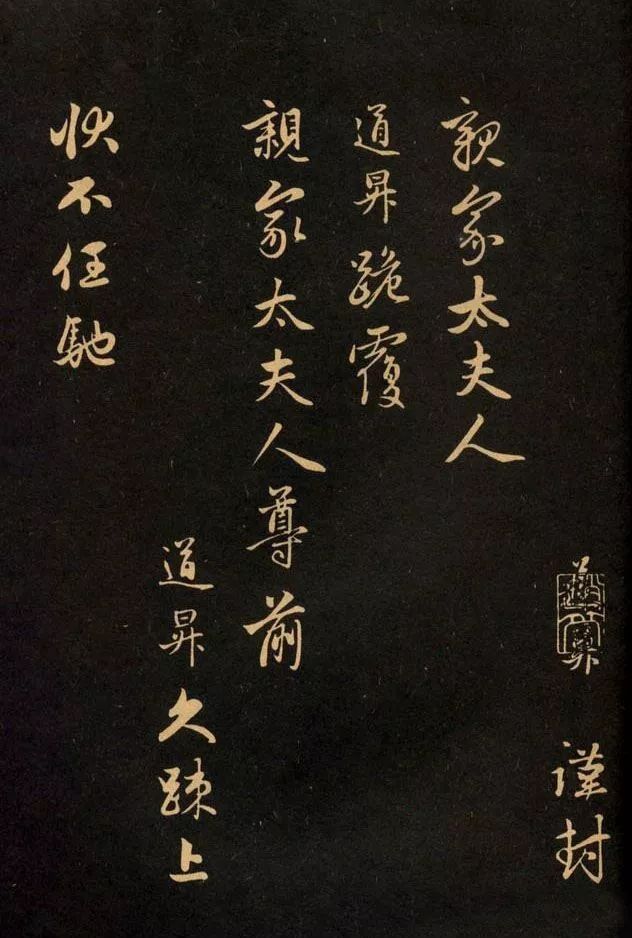 謹封
親家太夫人
道昇跪覆
親家太夫人尊前
道昇久踈上
狀不任馳